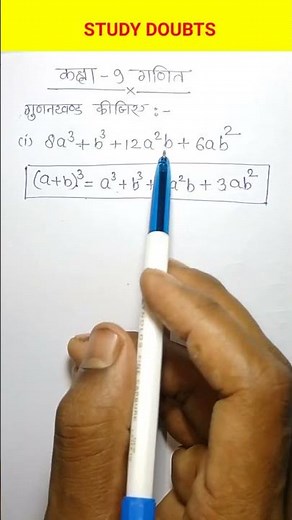 STUDY DOUBTS
कक्षा - 9 गणित
गुणनखण्ड कीजिए :-
(i) 8a³ + b³ + 12a²b + 6ab²
(a+b)³ = a³ + b³ + a²b + 3ab²